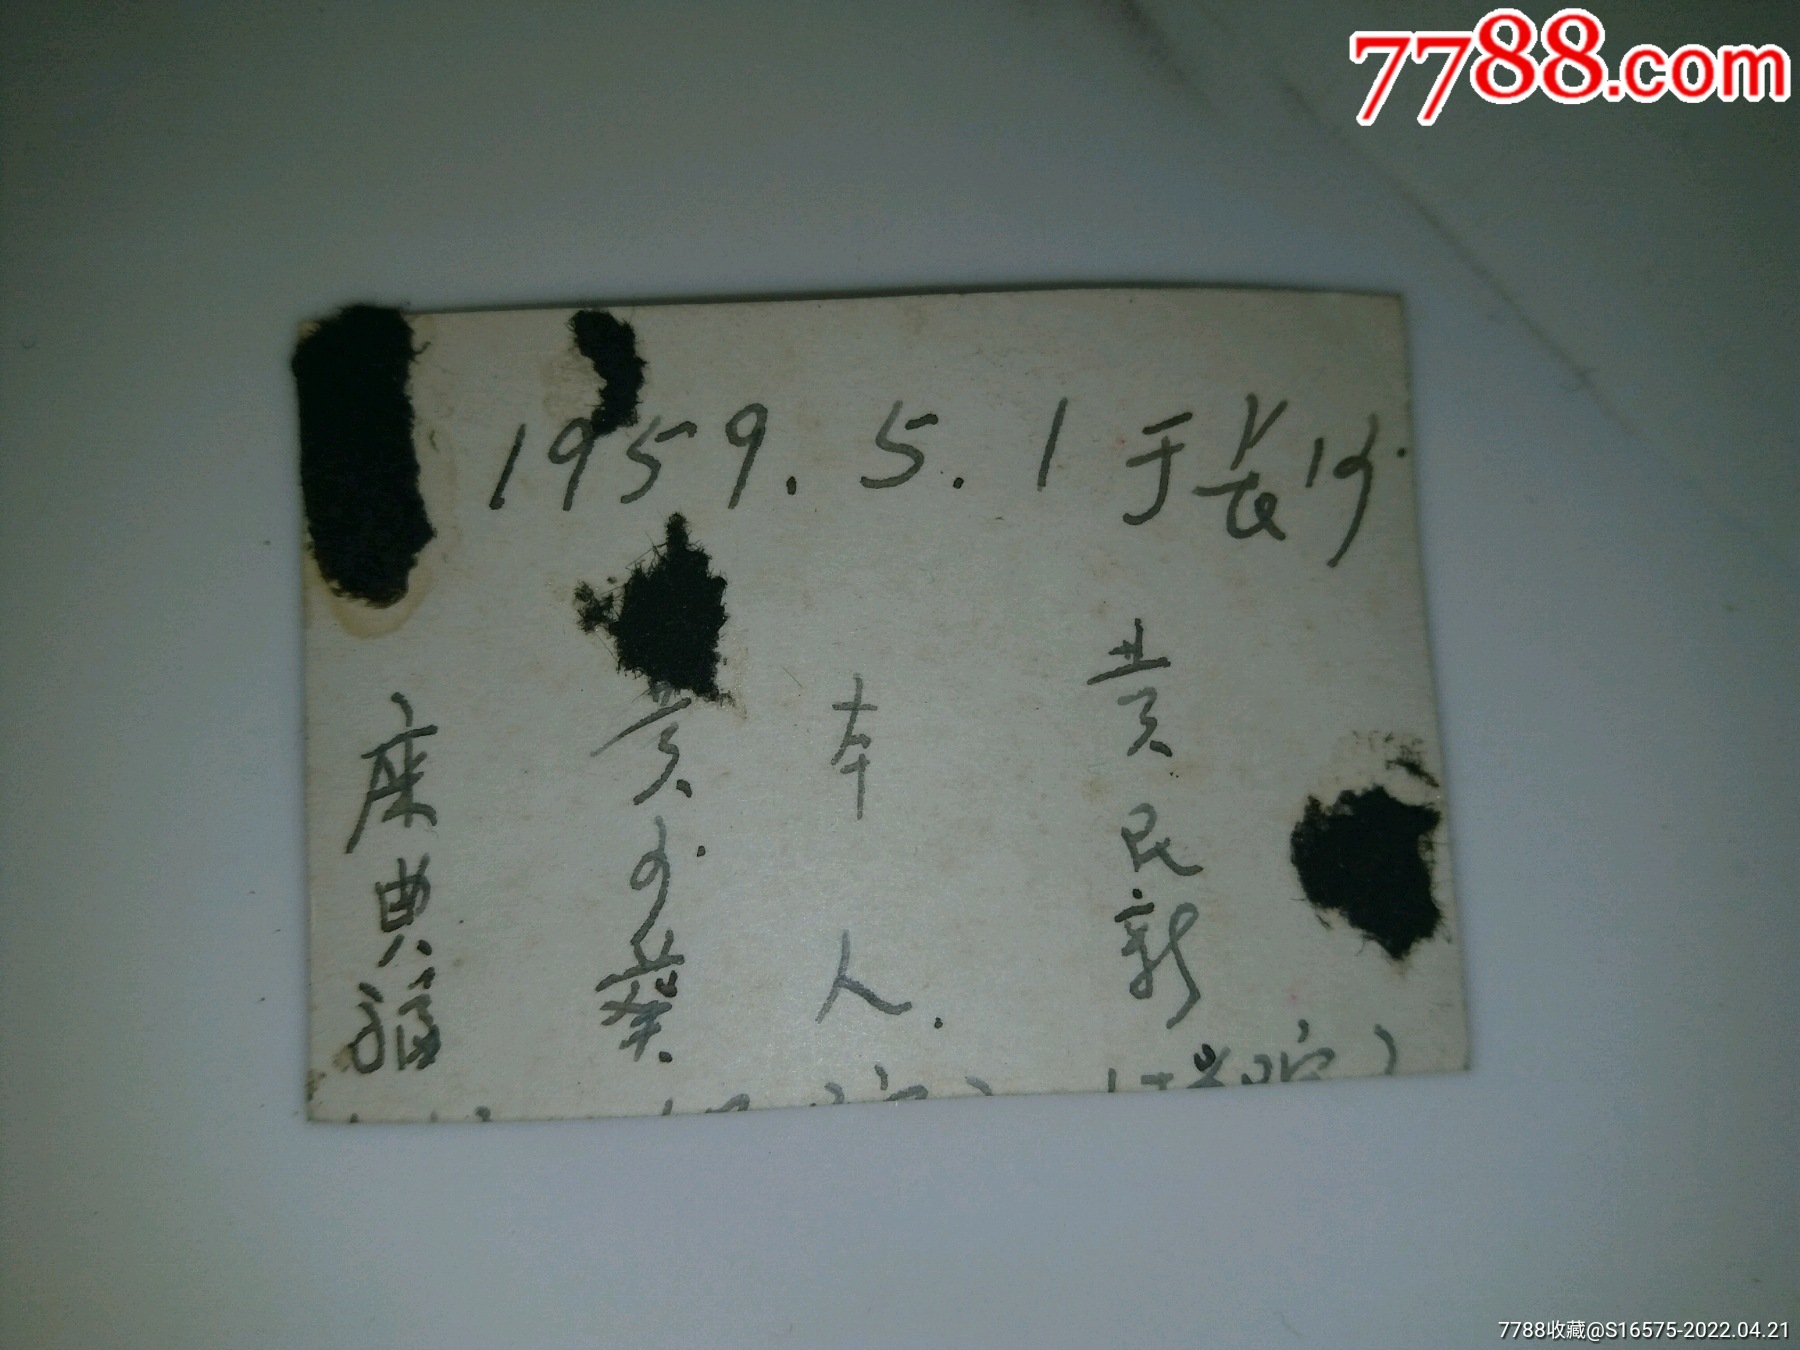 7788.com
1959.5.1于长沙.
黄民新
本人.
黄少葵
典福
7788收藏@S16575-2022.04.21